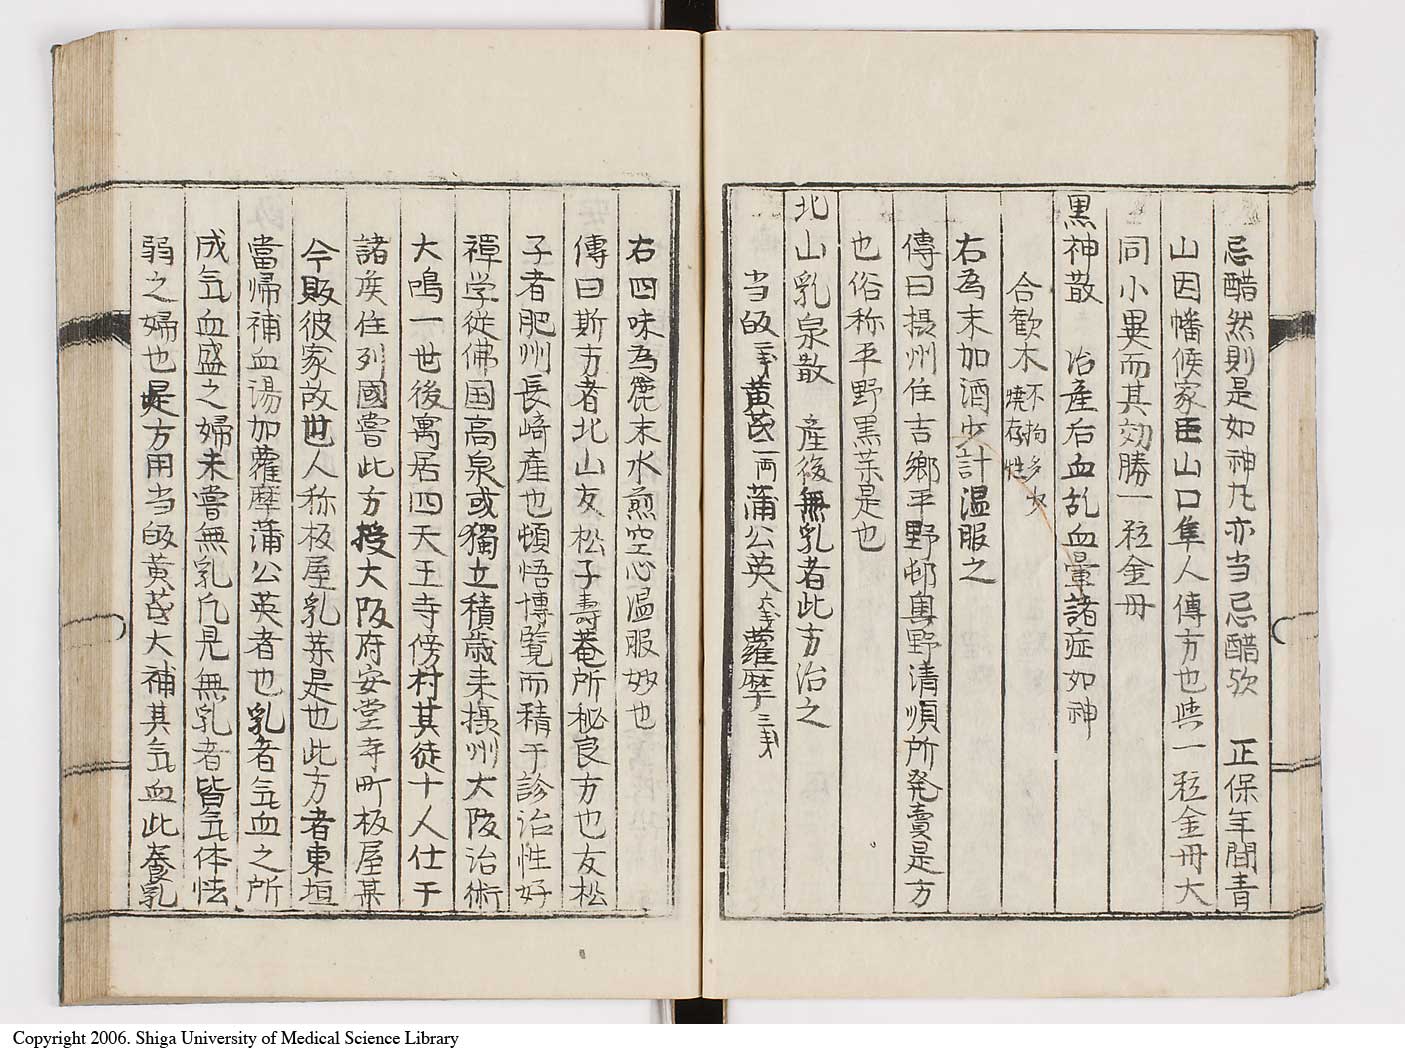 忌醋然則是如神丸亦当忌醋欤　正保年間青
山因幡候家臣山口隼人傳方也与一粒金丹大
同小異而其効勝一粒金丹
黒神散　治産后血乱血暈諸症如神
合歓木不拘多少焼存性
右為末加酒少計温服之
傳曰摂州住吉郷平野邨奥野清順所発賣是方
也俗称平野黒茶是也
北山乳泉散　産後無乳者此方治之
当皈二匁黄芪一両蒲公英六匁蘿摩三匁
右四味為麁末水煎空心温服妙也
傳曰斯方者北山友松子壽菴所秘良方也友松
子者肥州長崎産也頓悟博覧而精于診治性好
禅学従佛国高泉或獨立積歳来摂州大阪治術
大鳴一世後寓居四天王寺傍村其徒十人仕于
諸侯住列國嘗此方授大阪府安堂寺町板屋某
今販彼家故世人称板屋乳薬是也此方者東垣
當帰補血湯加蘿摩蒲公英者也乳者気血之所
成気血盛之婦未嘗無乳凡見無乳者皆気体怯
弱之婦也是方用当皈黄芪大補其気血此養乳
Copyright 2006. Shiga University of Medical Science Library